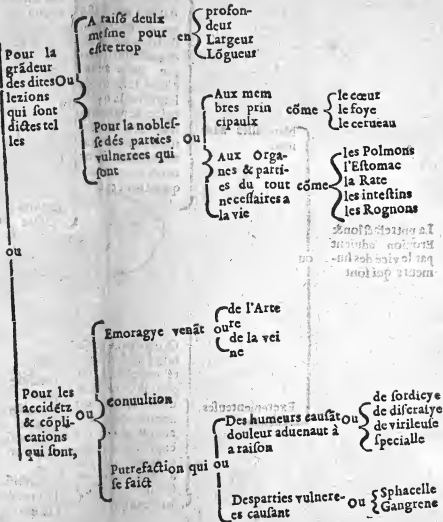 Pour la
grādeur
des dites Ou
lezions
qui sont
dictes tel
les
A raisō deulx
mesme pour en
estre trop
profon-
deur
Largeur
Lōgueur
Pour la nobles-
se dés parties Ou
vulnerees qui
sont
Aux mem
bres prin cōme
cipaulx
le cœur
le foye
le cerueau
Aux Orga-
nes & parti-
es du tout cōme
necessaires a
la vie
les Polmons
l'Estomac
la Rate
les intestins
les Rognons
ou
Pour les
accidētz Ou
& cōpli-
cations
qui sont,
Emoragye venāt ou
de l'Arte
re
de la vei
ne
conuultion
Putrefaction qui ou
se faict
Des humeurs causāt Ou
douleur aduenaut à
a raison
de sordicye
de discraiye
de virileuse
specialle
Desparties vulnere- Ou
es causant
Sphacelle
Gangrene